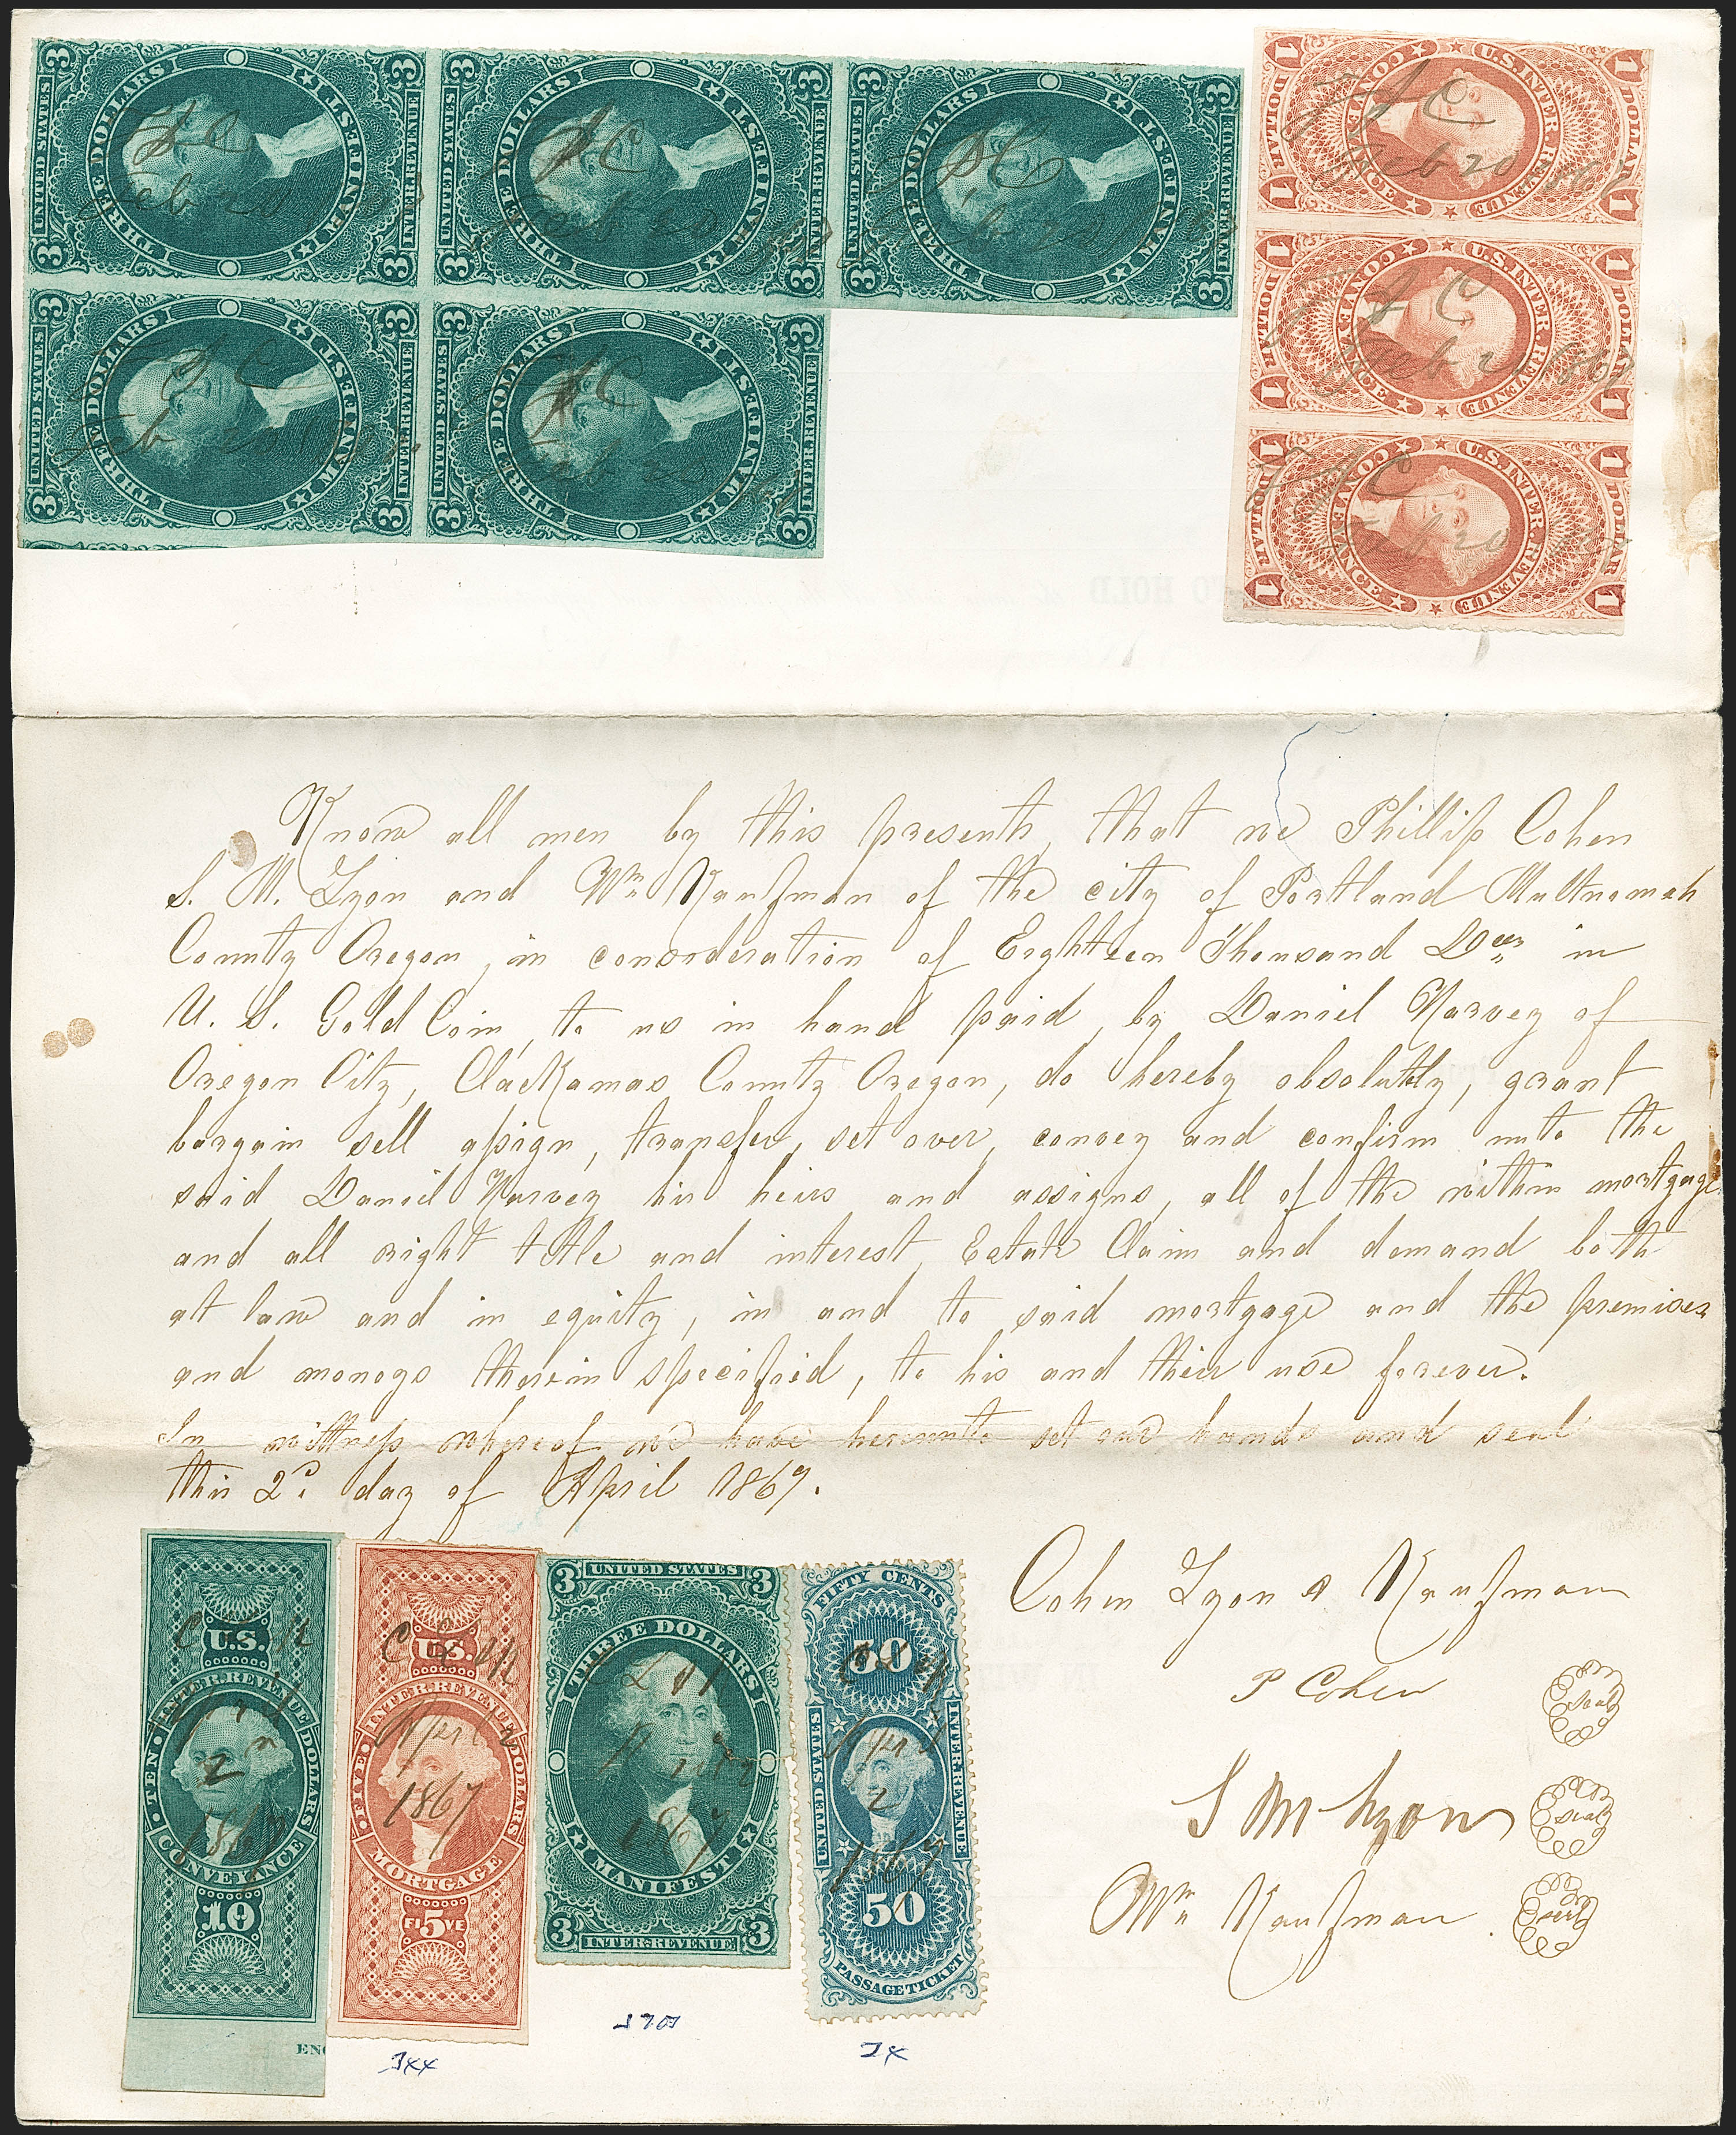 3 UNITED STATES 3 THREE DOLLARS MANIFEST 3 INTER REVENUE 3
Feb 20
3 UNITED STATES 3 THREE DOLLARS MANIFEST 3 INTER REVENUE 3
Feb 20
3 UNITED STATES 3 THREE DOLLARS MANIFEST 3 INTER REVENUE 3
Feb 20
1 DOLLAR 1 U.S. INTER. REVENUE CONVEYANCE 1 DOLLAR 1
Feb 20 1867
3 UNITED STATES 3 THREE DOLLARS MANIFEST 3 INTER REVENUE 3
Feb 20
3 UNITED STATES 3 THREE DOLLARS MANIFEST 3 INTER REVENUE 3
Feb 20
1 DOLLAR 1 U.S. INTER. REVENUE CONVEYANCE 1 DOLLAR 1
Feb 20 1867
1 DOLLAR 1 U.S. INTER. REVENUE CONVEYANCE 1 DOLLAR 1
Feb 20
TO HOLD
Know all men by this presents, that we Phillip Cohen
S. M. Lyon and Wm Kaufman of the city of Portland Multnomah
County Oregon, in consideration of Eighteen Thousand Dolls in
U. S. Gold Coin, to us in hand paid, by Daniel Harvey of
Oregon City, Clackamas County Oregon, do hereby absolutely, grant
bargain sell assign, transfer, set over, convey and confirm unto the
said Daniel Harvey his heirs and assigns, all of the within mortgage
and all right title and interest, Estate Claim and demand both
at law and in equity, in and to said mortgage and the premises
and moneys therein specified, to his and their use forever.
In wittness whereof we have hereunto set our hands and seal
this 2d day of April 1867.
Cohen Lyon & Kaufman
P Cohen seal
S M Lyon seal
Wm Kaufman seal
U.S. INTER. REVENUE TEN DOLLARS CONVEYANCE 10
C L & K April 2 1867
ENG
U.S. INTER. REVENUE FIVE DOLLARS MORTGAGE FI 5 VE
C L & K April 2 1867
3 UNITED STATES 3 THREE DOLLARS MANIFEST 3 INTER. REVENUE 3
C L & K April 2 1867
FIFTY CENTS 50 UNITED STATES INTER. REVENUE 50 PASSAGE TICKET
C L & K April 2 1867